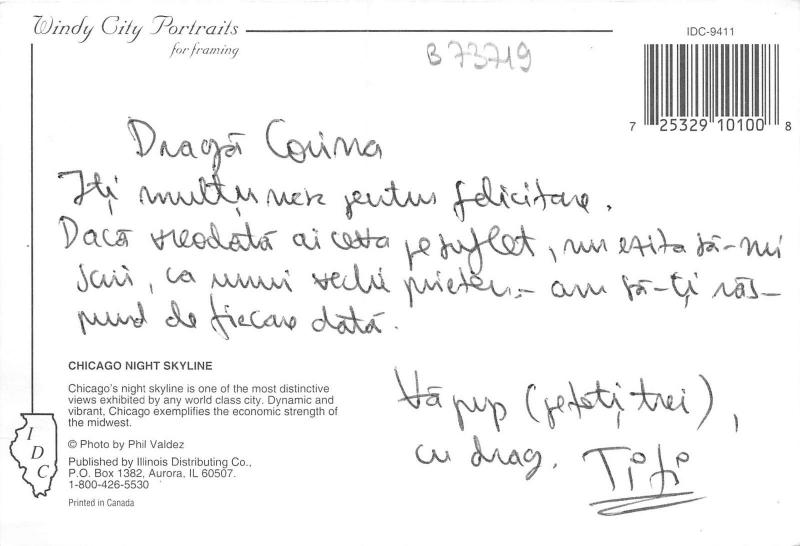 Windy City Portraits
for framing
B 73719
IDC-9411
7 25329 10100 8
Dragă Corina
Îți mulțumesc pentru felicitare.
Dacă vreodată ai ceva pe suflet, nu ezita să-mi
scrii, ca unui vechi prieten - am să-ți răs-
pund de fiecare dată.
CHICAGO NIGHT SKYLINE
Chicago's night skyline is one of the most distinctive
views exhibited by any world class city. Dynamic and
vibrant, Chicago exemplifies the economic strength of
the midwest.
© Photo by Phil Valdez
Published by Illinois Distributing Co.,
P.O. Box 1382, Aurora, IL 60507.
1-800-426-5530
Printed in Canada
IDC
Vă pup (pe toți trei),
cu drag, Tifi